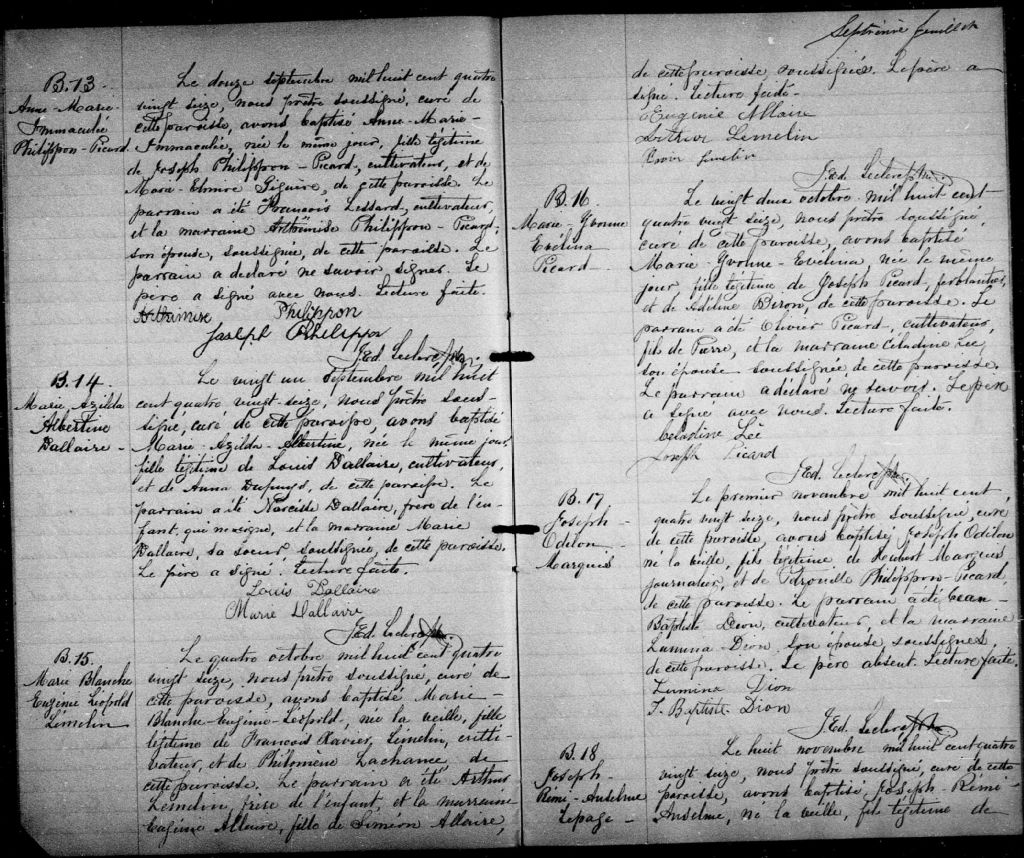 B. 13
Anne-Marie-
Immaculée
Philippon-Picard
Le douze septembre mil huit cent quatre
vingt seize, nous prêtre soussigné, curé de
cette paroisse, avons baptisé Anne-Marie-
Immaculée, née le même jour, fille légitime
de Joseph Philippon-Picard, cultivateur, et de
Mara-Elmire Giguère, de cette paroisse. Le
parrain a été François Lessard, cultivateur
et la marraine Arthémise Philippon-Picard,
son épouse, soussignée, de cette paroisse. Le
parrain a déclaré ne savoir signer. Le
père a signé avec nous. Lecture faite.
Arthémise Philippon
Joseph Philippon
J. Ed. Leclerc Ptre.
B. 14
Marie Azilda
Albertine
Dallaire
Le vingt un Septembre mil huit
cent quatre vingt seize, nous prêtre sous-
signé, curé de cette paroisse, avons baptisé
Marie-Azilda-Albertine, née le même jour,
fille légitime de Louis Dallaire, cultivateur,
et de Anna Dupuys, de cette paroisse. Le
parrain a été Narcisse Dallaire, frère de l'en-
fant, qui ne signe, et la marraine Marie
Dallaire, sa soeur, soussignée, de cette paroisse.
Le père a signé. Lecture faite.
Louis Dallaire
Marie Dallaire
J. Ed. Leclerc Ptre.
B. 15.
Marie Blanche
Eugénie Léopold
Lemelin
Le quatre octobre mil huit cent quatre
vingt seize, nous prêtre soussigné, curé de
cette paroisse, avons baptisé Marie-
Blanche-Eugénie-Léopold, née la veille, fille
légitime de François Xavier Lemelin, culti-
vateur, et de Philomène Lachance, de
cette paroisse. Le parrain a été Arthur
Lemelin, frère de l'enfant, et la marraine
Eugénie Allaire, fille de Siméon Allaire,
Septième feuillet
de cette paroisse, soussignés. Le père a
signé. Lecture faite.
Eugénie Allaire
Lemelin
Lemelin
J. Ed. Leclerc Ptre.
B. 16
Marie-Yvonne
Evélina
Picard
Le vingt deux octobre mil huit cent
quatre vingt seize, nous prêtre soussigné,
curé de cette paroisse, avons baptisé
Marie-Yvonne-Evelina, née le même
jour, fille légitime de Joseph Picard, ferblantier,
et de Adéline Biron, de cette paroisse. Le
parrain a été Olivier Picard, cultivateur,
fils de Pierre, et la marraine Célandine Lée
son épouse soussignée de cette paroisse.
Le parrain a déclaré ne savoir. Le père
a signé avec nous. Lecture faite.
Celandine Lée
Joseph Picard
J. Ed. Leclerc Ptre.
B. 17
Joseph-
Odilon-
Marquis
Le premier novembre mil huit cent
quatre vingt seize, nous prêtre soussigné, curé
de cette paroisse, avons baptisé Joseph Odilon
né la veille, fils légitime de Hubert Marquis
journalier, et de Pétronille Philippon-Picard,
de cette paroisse. Le parrain a été Jean-
Baptiste Dion, cultivateur, et la marraine
Lumina Dion son épouse, soussignés
de cette paroisse. Le père absent. Lecture faite.
Lumina Dion
J. Baptiste Dion
J. Ed. Leclerc Ptre
B. 18
Joseph-
Rémi-Anselme
Lepage
Le huit novembre mil huit cent quatre
vingt seize, nous prêtre soussigné, curé de cette
paroisse, avons baptisé, Joseph-Rémi-
Anselme, né la veille, fils légitime de